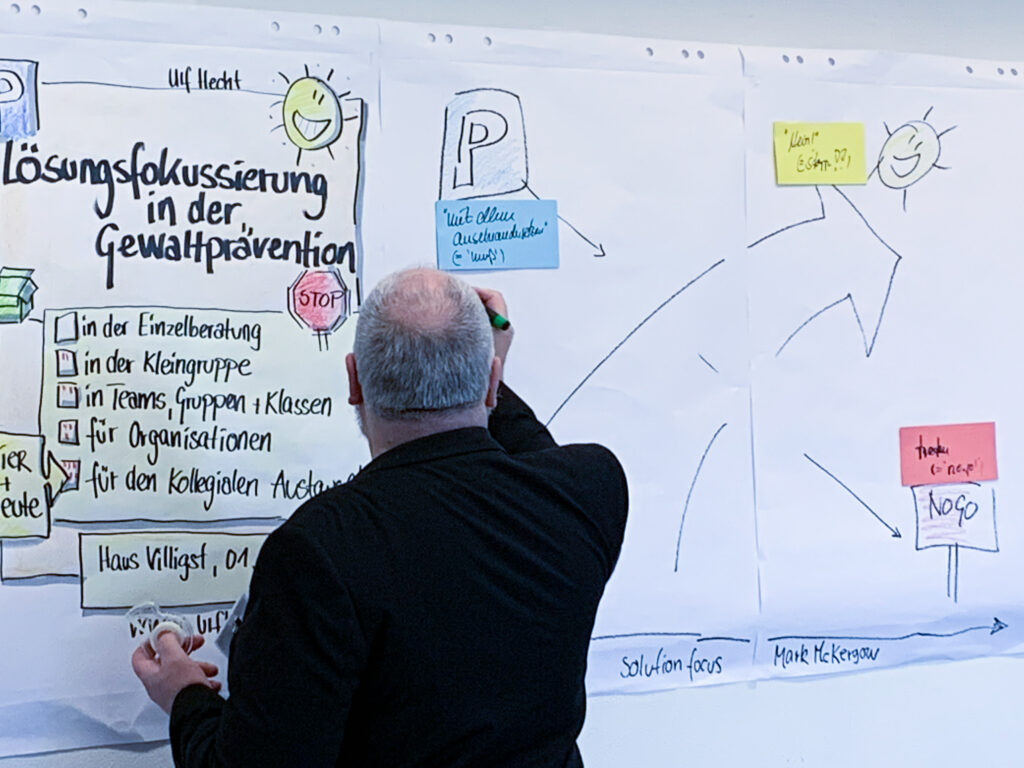 P
Ulf Hecht
Lösungsfokussierung
in der
Gewaltprävention
STOP
in der Einzelberatung
in der Kleingruppe
in Teams, Gruppen + Klassen
für Organisationen
für den Kollegialen
IER
+
eute
Haus Villigst, 01.
P
"mit allem
(= "muß")
"Nein!"
NOGO
Solution focus
Mark McKergow